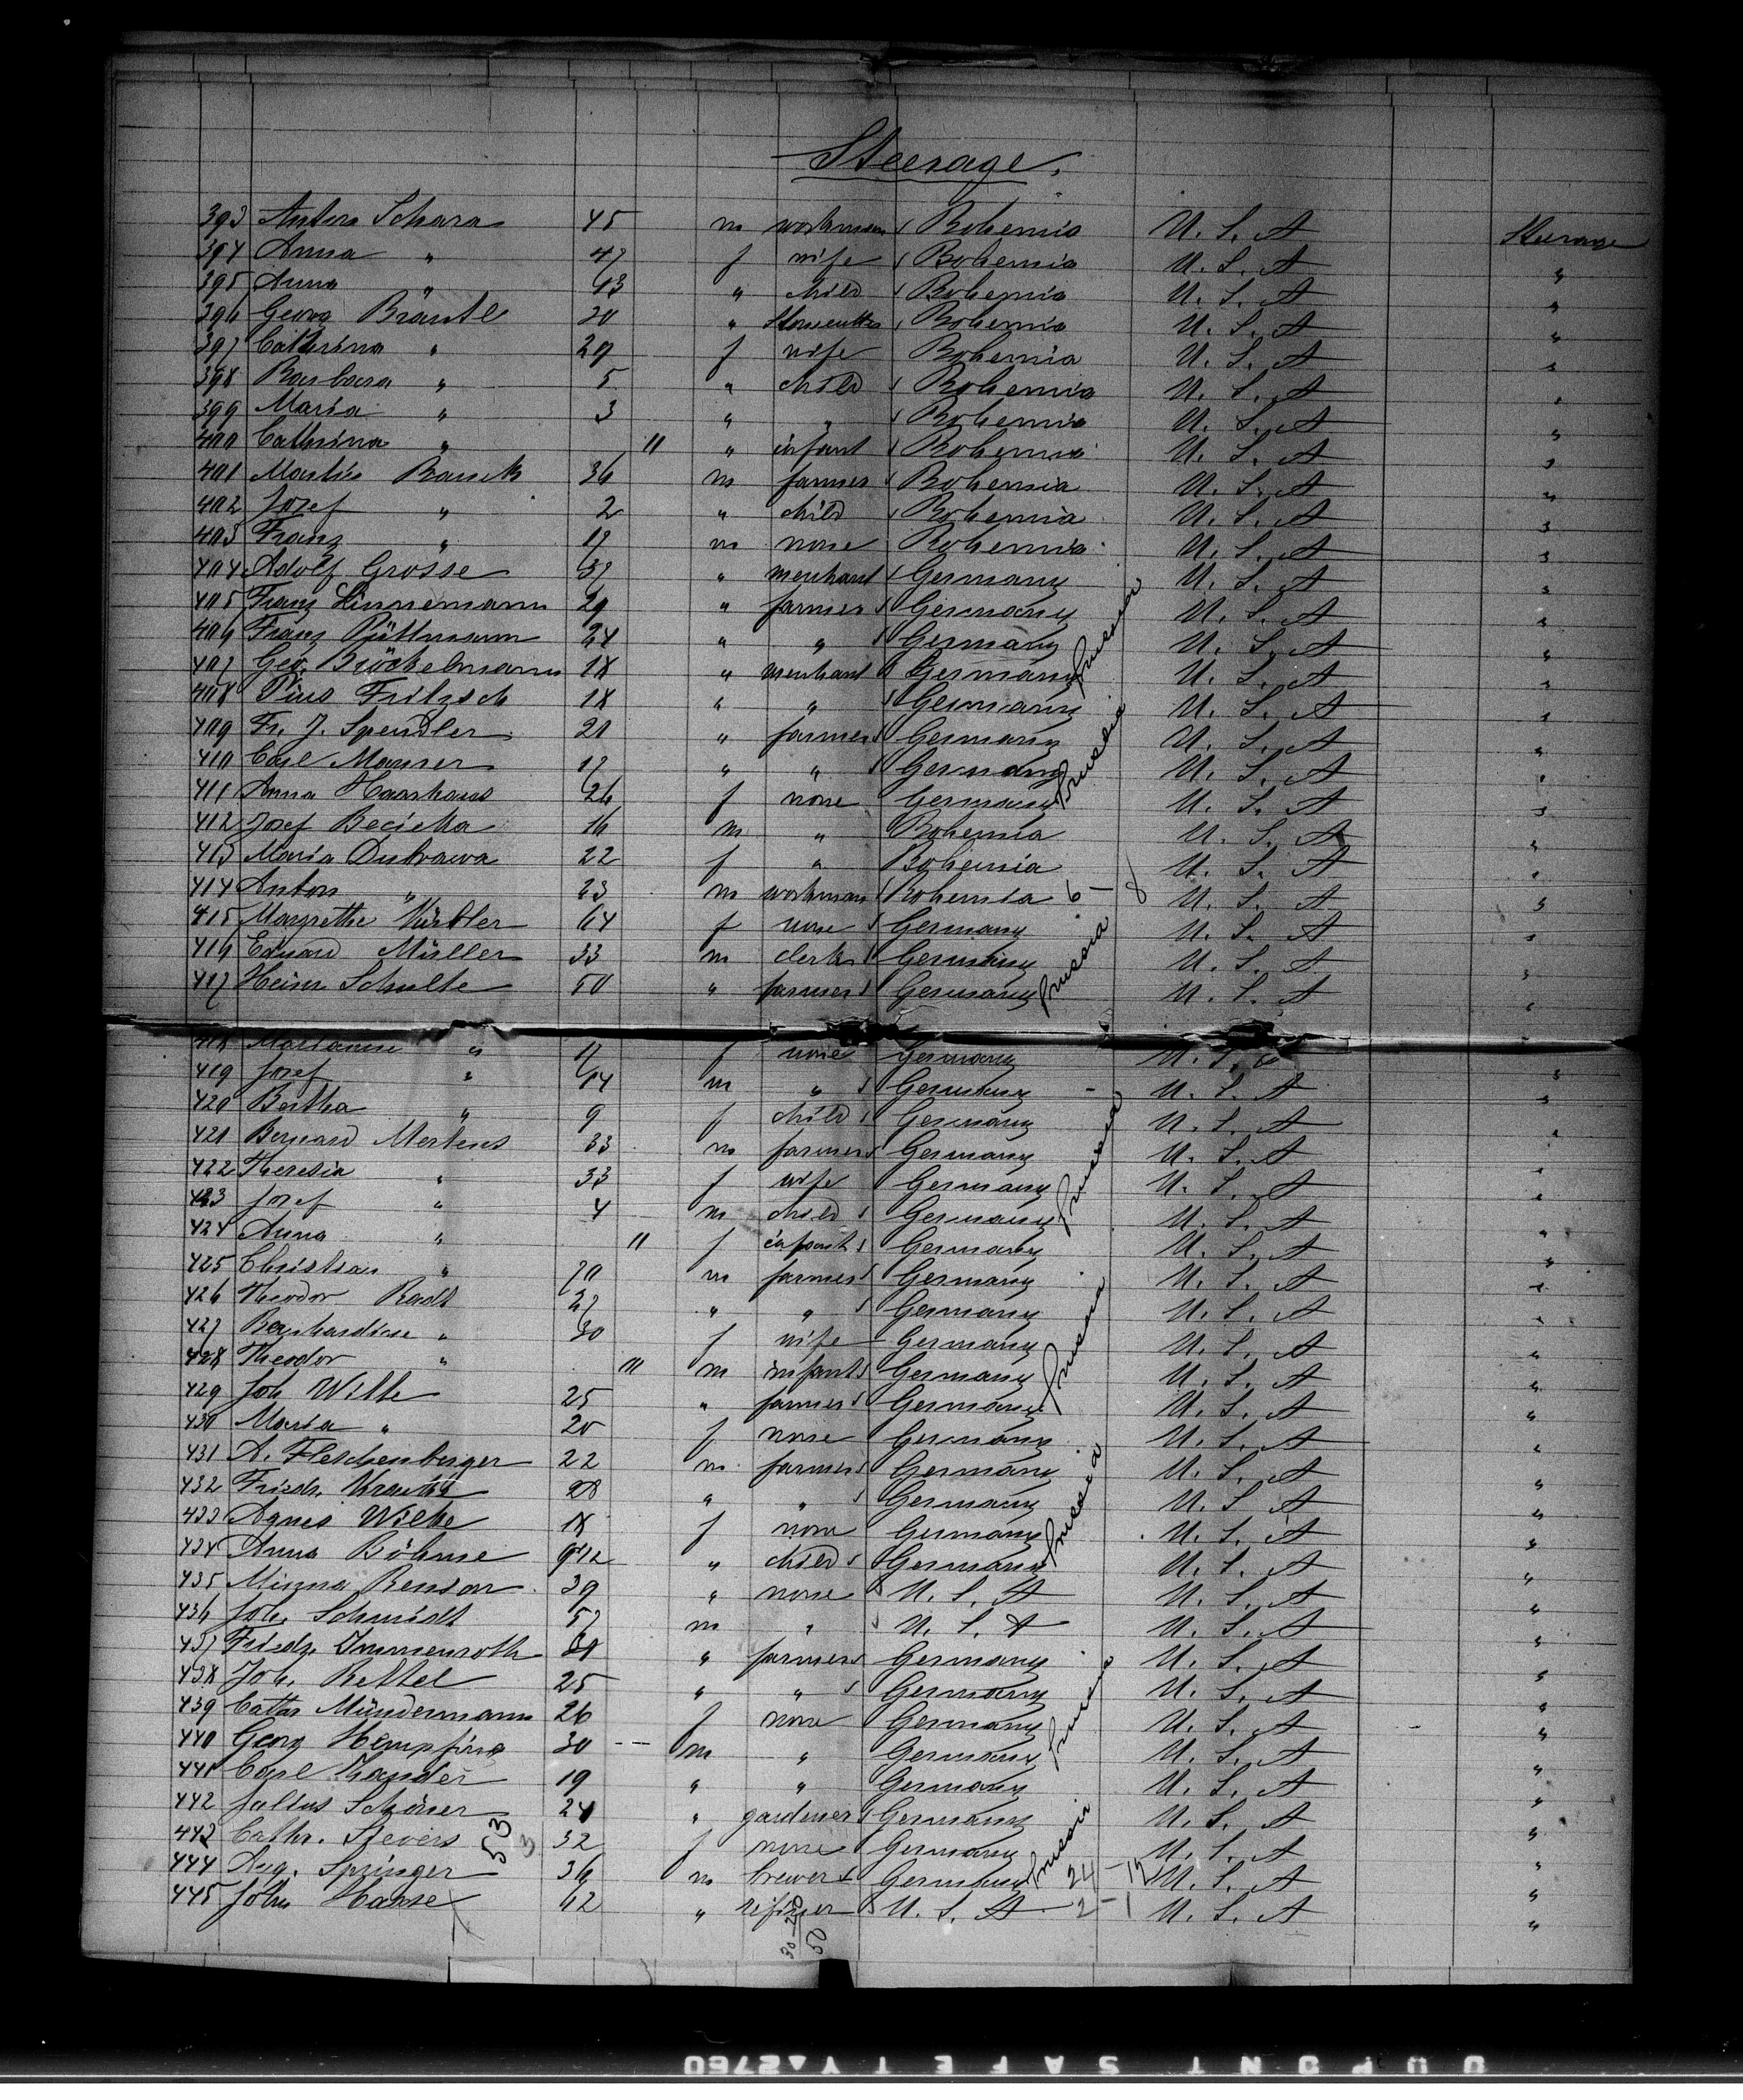 Steerage.
393 Anton Schara 45 m workman Bohemia U. S. A Steerage
394 Anna " 47 f wife Bohemia U. S. A "
395 Anna " 13 " child Bohemia U. S. A "
396 Georg Bräutl 20 " Bohemia U. S. A "
397 Cathrina " 29 f wife Bohemia U. S. A "
398 Barbara " 5 " child Bohemia U. S. A "
399 Maria " 3 " " Bohemia U. S. A "
400 Cathrina " 11 " infant Bohemia U. S. A "
401 Martin 36 m farmer Bohemia U. S. A "
402 Josef " 2 " child Bohemia U. S. A "
403 Franz " 17 m none Bohemia U. S. A "
404 Adolf Grosse 37 " merchant Germany U. S. A "
405 Franz Hinnemann 29 " farmer Germany U. S. A "
406 Franz Püttmann 24 " " Germany U. S. A "
407 Geo. Bröckelmann 18 " merchant Germany Prussia U. S. A "
408 Pius Fritzsch 18 " " Germany U. S. A "
409 Fr. J. Spendler 21 " farmer Germany U. S. A "
410 Carl Manser 17 " " Germany U. S. A "
411 Anna Haarhaus 26 f none Germany Prussia U. S. A "
412 Josef Becicka 16 m " Bohemia U. S. A "
413 Maria Dubrawa 22 f " Bohemia U. S. A "
414 Anton " 23 m workman Bohemia 6 - 8 U. S. A "
415 Margrethe 64 f none Germany U. S. A "
416 Eduard Müller 33 m clerk Germany U. S. A "
417 Heinr Schulte 50 " farmer Germany Prussia U. S. A "
418 Marianne " 17 f none Germany U. S. A "
419 Josef " 14 m " Germany - U. S. A "
420 Bertha " 9 f child Germany U. S. A "
421 Bernard Mertens 33 m farmer Germany U. S. A "
422 Theresia " 33 f wife Germany U. S. A "
423 Josef " 4 m child Germany Prussia U. S. A "
424 Anna " 11 f infant Germany U. S. A "
425 Christian " 70 m farmer Germany U. S. A "
426 Theodor Radt 37 " " Germany U. S. A "
427 Bernhardine " 30 f wife Germany U. S. A "
428 Theodor " m infant Germany U. S. A "
429 Joh Witte 25 " farmer Germany Prussia U. S. A "
430 Maria " 20 f none Germany U. S. A "
431 A. Fleschenberger 22 m farmer Germany U. S. A "
432 Friedr. 28 " " Germany U. S. A "
433 Agnes Wilke 18 f none Germany U. S. A "
434 Anna Böhme 9 1/2 " child Germany Prussia U. S. A "
435 Minna Benson 39 " none U. S. A U. S. A "
436 Joh. Schmidt 57 m " U. S. A U. S. A "
437 Friedr. Immenroth 31 " farmer Germany U. S. A "
438 Joh. Rettel 25 " " Germany U. S. A "
439 Cathar Mündermann 26 f none Germany U. S. A "
440 Georg Hempfing 30 m " Germany Prussia U. S. A "
441 Carl Zander 19 " " Germany U. S. A "
442 Julius Schöner 24 " gardener Germany U. S. A "
443 Cathr. Sievers 53 3 32 f none Germany U. S. A "
444 Aug. Springer 36 m brewer Germany Prussia 24 - U. S. A "
445 John Hanse 62 " refiner U. S. A 2 - 1 U. S. A "
30 - 20
50
DUPONT SAFETY 2760